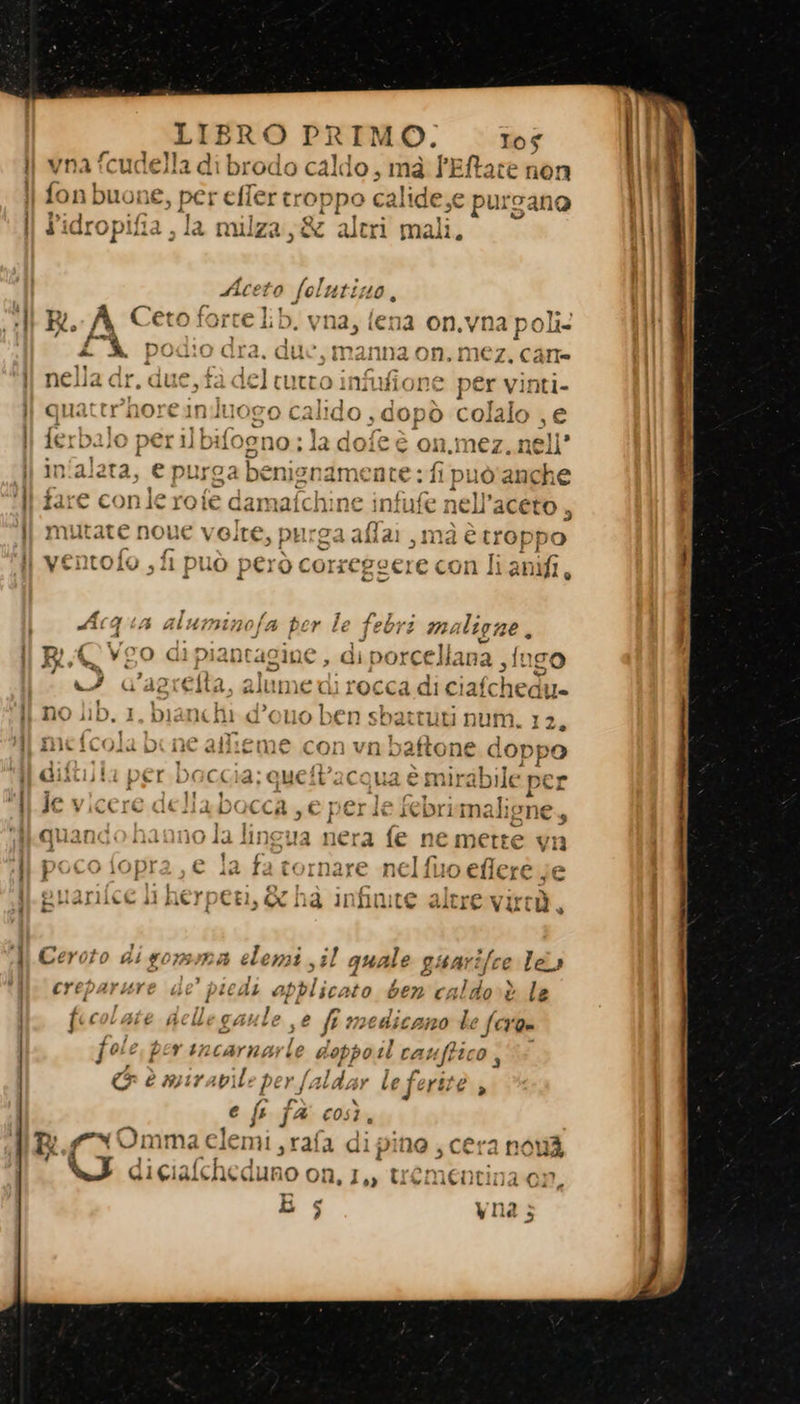 LIBRO PRIMO. 105
vna ſcudella di brodo caldo, mà l'Eſtate non
ſon buone, per eſſer troppo calide, e purgano
l'idropiſia, la milza, & altri mali.
Aceto ſolutiuo,
℞. ACeto forte lib. vna, ſena on. vna poli-
podio dra. due, manna on. mez. can-
nella dr. due, fà del tutto infuſione per vinti-
quattr'hore in luogo calido, dopò colalo, e
ſerbalo per il biſogno; la doſe è on. mez. nell'
inſalata, e purga benignamente: ſi può anche
fare con le roſe damaſchine infuſe nell'aceto,
mutate noue volte, purga aſſai, mà è troppo
ventoſo, ſi può però correggere con li aniſi,
Acqua aluminoſa per le febri maligne.
℞. SVgo di piantagine, di porcellana, ſugo
d'agreſta, alume di rocca di ciaſchedu-
no lib. 1. bianchi d'ouo ben sbattuti num. 12,
meſcola bene aſſieme con vn baſtone doppo
diſtilla per boccia; queſt'acqua è mirabile per
le vlcere della bocca, e per le febri maligne,
quando hanno la lingua nera ſe ne mette vn
poco ſopra, e la fa tornare nel ſuo eſſere, e
guariſce li herpeti, & hà infinite altre virtù,
Ceroto di gomma elemi, il quale guariſce le
creparure de' piedi applicato ben caldo è le
ſcolate delle gaule, e ſi medicano le ſcro-
fole, per incarnarle doppo il cauſtico,
& è mirabile per ſaldar le ferite,
e ſi fà così.
℞. GOmma elemi, raſa di pino, cera nouà
di ciaſcheduno on. 1., trementina on.
E 5 vna;